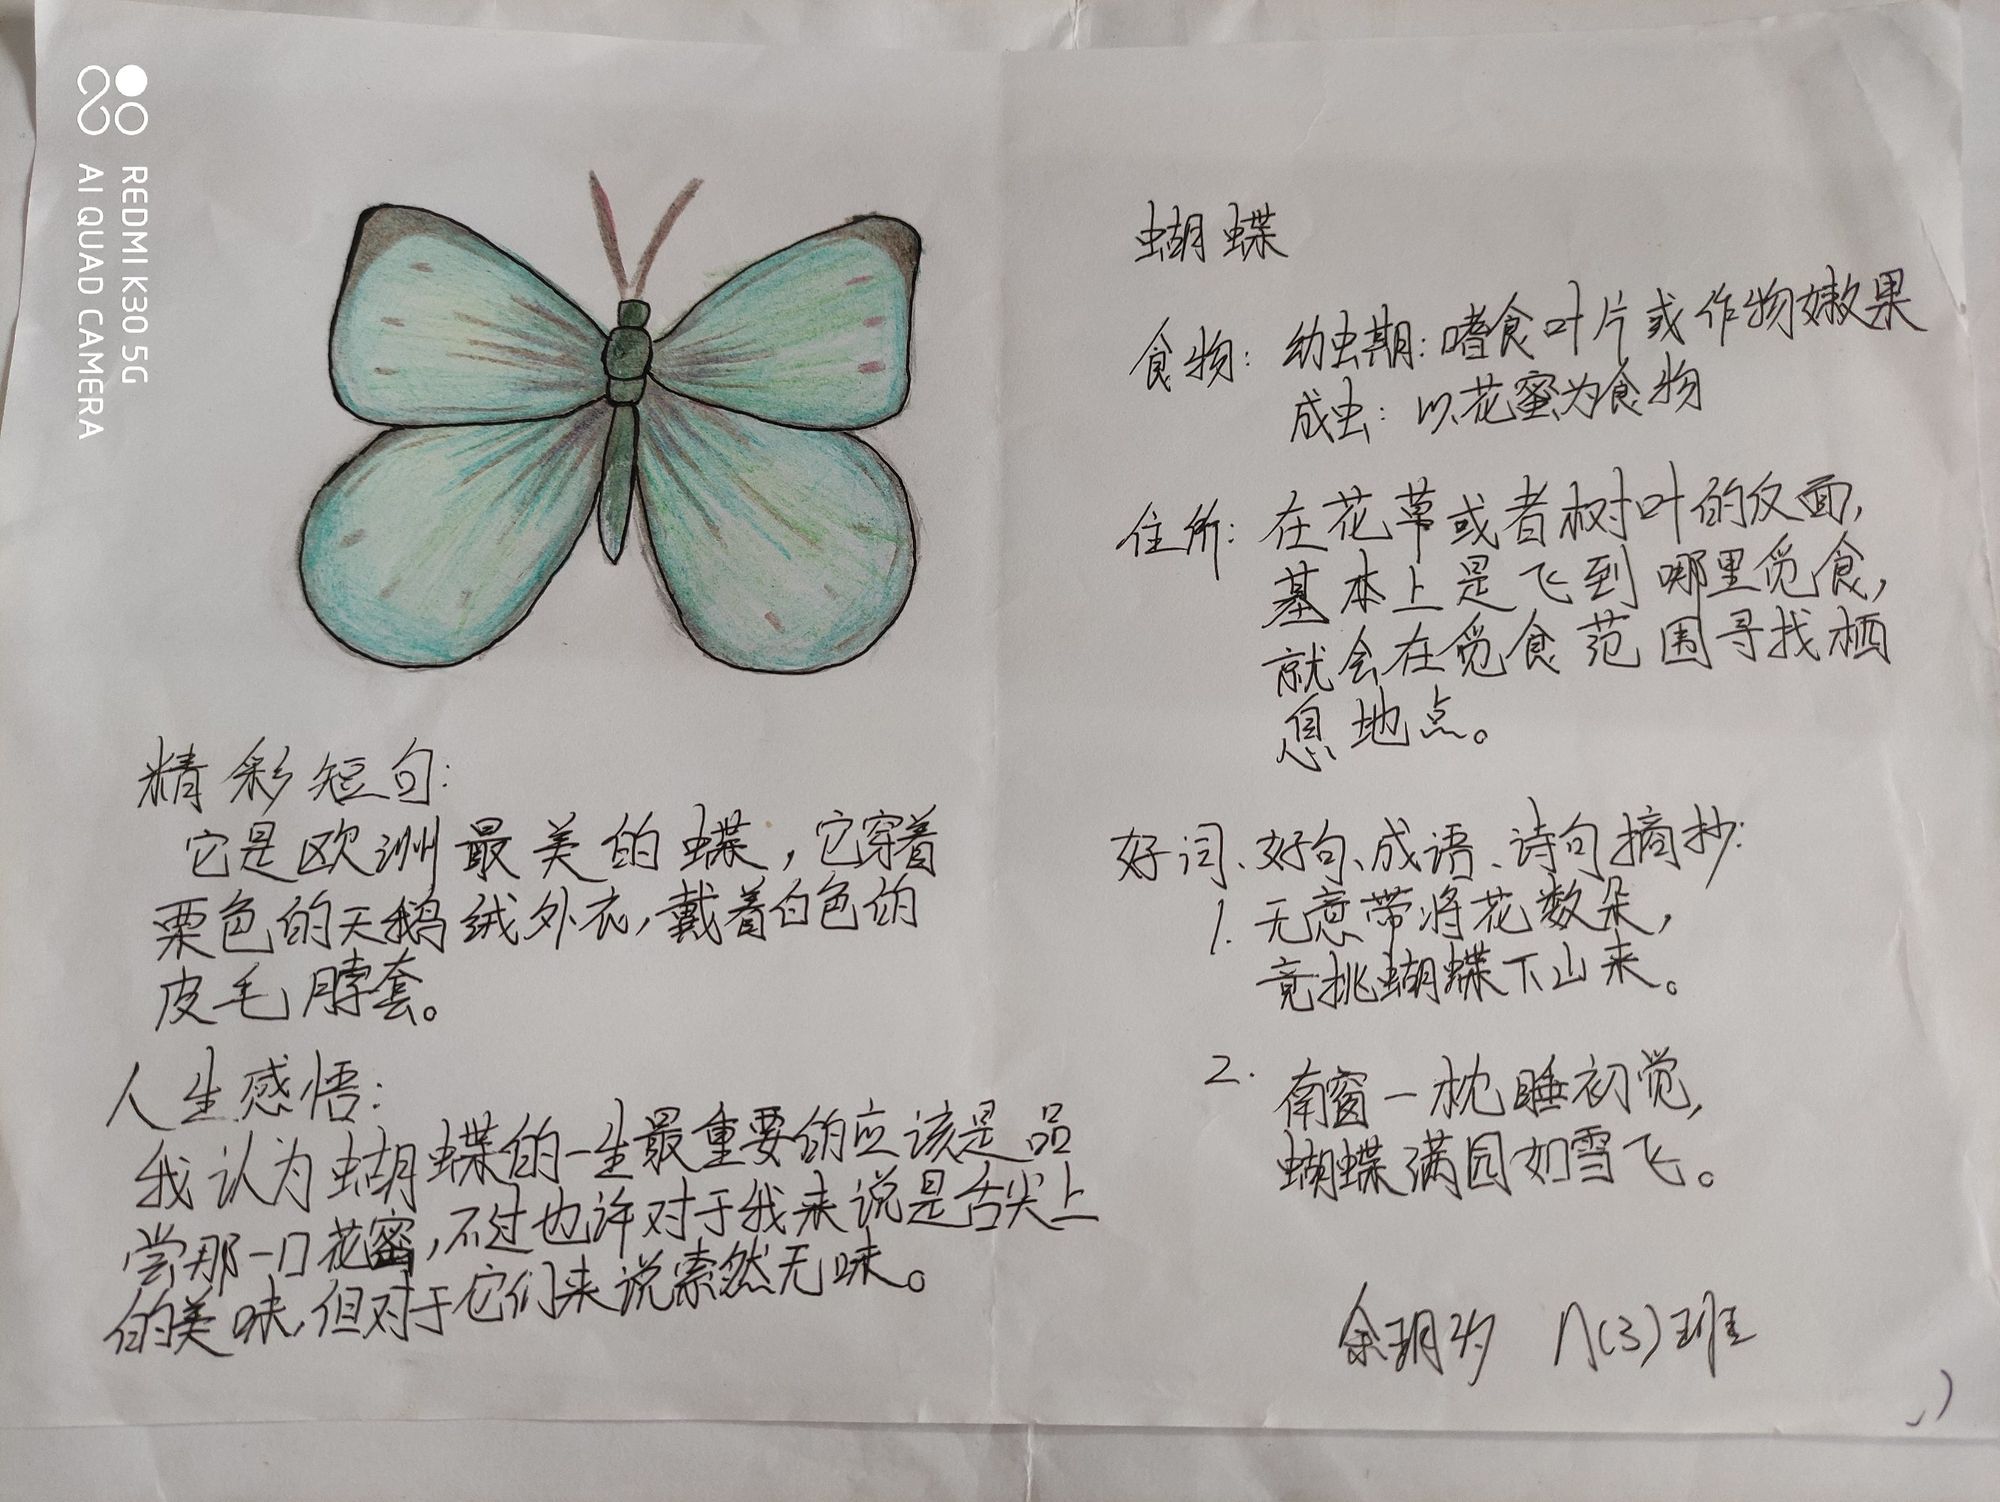 REDMI K30 5G
AI QUAD CAMERA
精彩短句:
它是欧洲最美的蝶,它穿着
栗色的天鹅绒外衣,戴着白色的
皮毛脖套。
人生感悟:
我认为蝴蝶的一生最重要的应该是品
尝那一口花蜜,不过也许对于我来说是舌尖上
的美味,但对于它们来说索然无味。
蝴蝶
食物: 幼虫期:嗜食叶片或作物嫩果
成虫: 以花蜜为食物
住所: 在花草或者树叶的反面,
基本上是飞到哪里觅食,
就会在觅食范围寻找栖
息地点。
好词、好句、成语、诗句摘抄:
1. 无意带将花数朵,
竟挑蝴蝶下山来。
2. 南窗一枕睡初觉,
蝴蝶满园如雪飞。
余玥 八(3)班